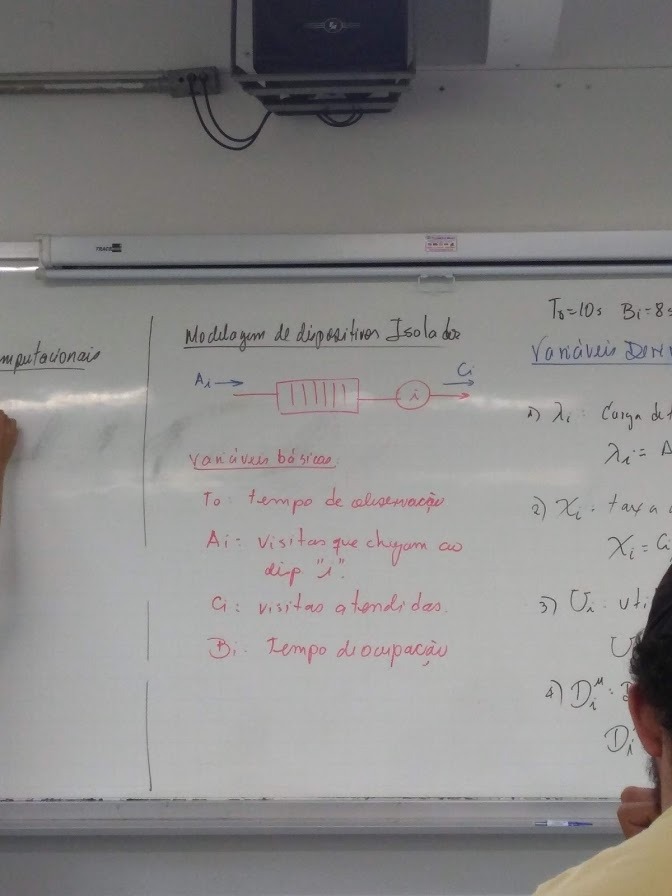 TRACE
mputacionais
Modelagem de dispositivos Isolados
Ai
Ci
i
Variáveis básicas:
To: tempo de observação
Ai: visitas que chegam ao
disp "i".
Ci: visitas atendidas.
Bi: Tempo de ocupação
To=10s Bi=8s
Variáveis Deri
1) λi: Carga de t
λi = A
2) Xi: taxa d
Xi = Ci
3) Ui: uti
U
4) Di :
Di